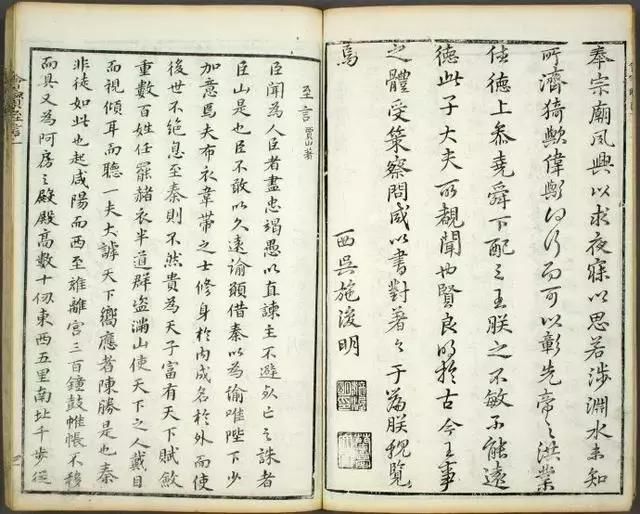 奉宗廟夙興以求夜寐以思若涉淵水未知
所濟猗歟偉歟何行而可以彰先帝之洪業
休德上參堯舜下配三王朕之不敏不能遠
德此子大夫所覩聞也賢良明於古今王事
之體受策察問咸以書對著之于篇朕親覽
焉
西吳施浚明
至言 賈山著
臣聞為人臣者盡忠竭愚以直諫主不避死亡之誅者
臣山是也臣不敢以久遠諭願借秦以為諭唯陛下少
加意焉夫布衣韋帶之士修身於内成名於外而使
後世不絕息至秦則不然貴為天子富有天下賦斂
重數百姓任罷赭衣半道群盜滿山使天下之人戴目
而視傾耳而聽一夫大謼天下嚮應者陳勝是也秦
非徒如此也起咸陽而西至雍離宮三百鐘鼓帷帳不移
而具又為阿房之殿殿高數十仞東西五里南北千步從